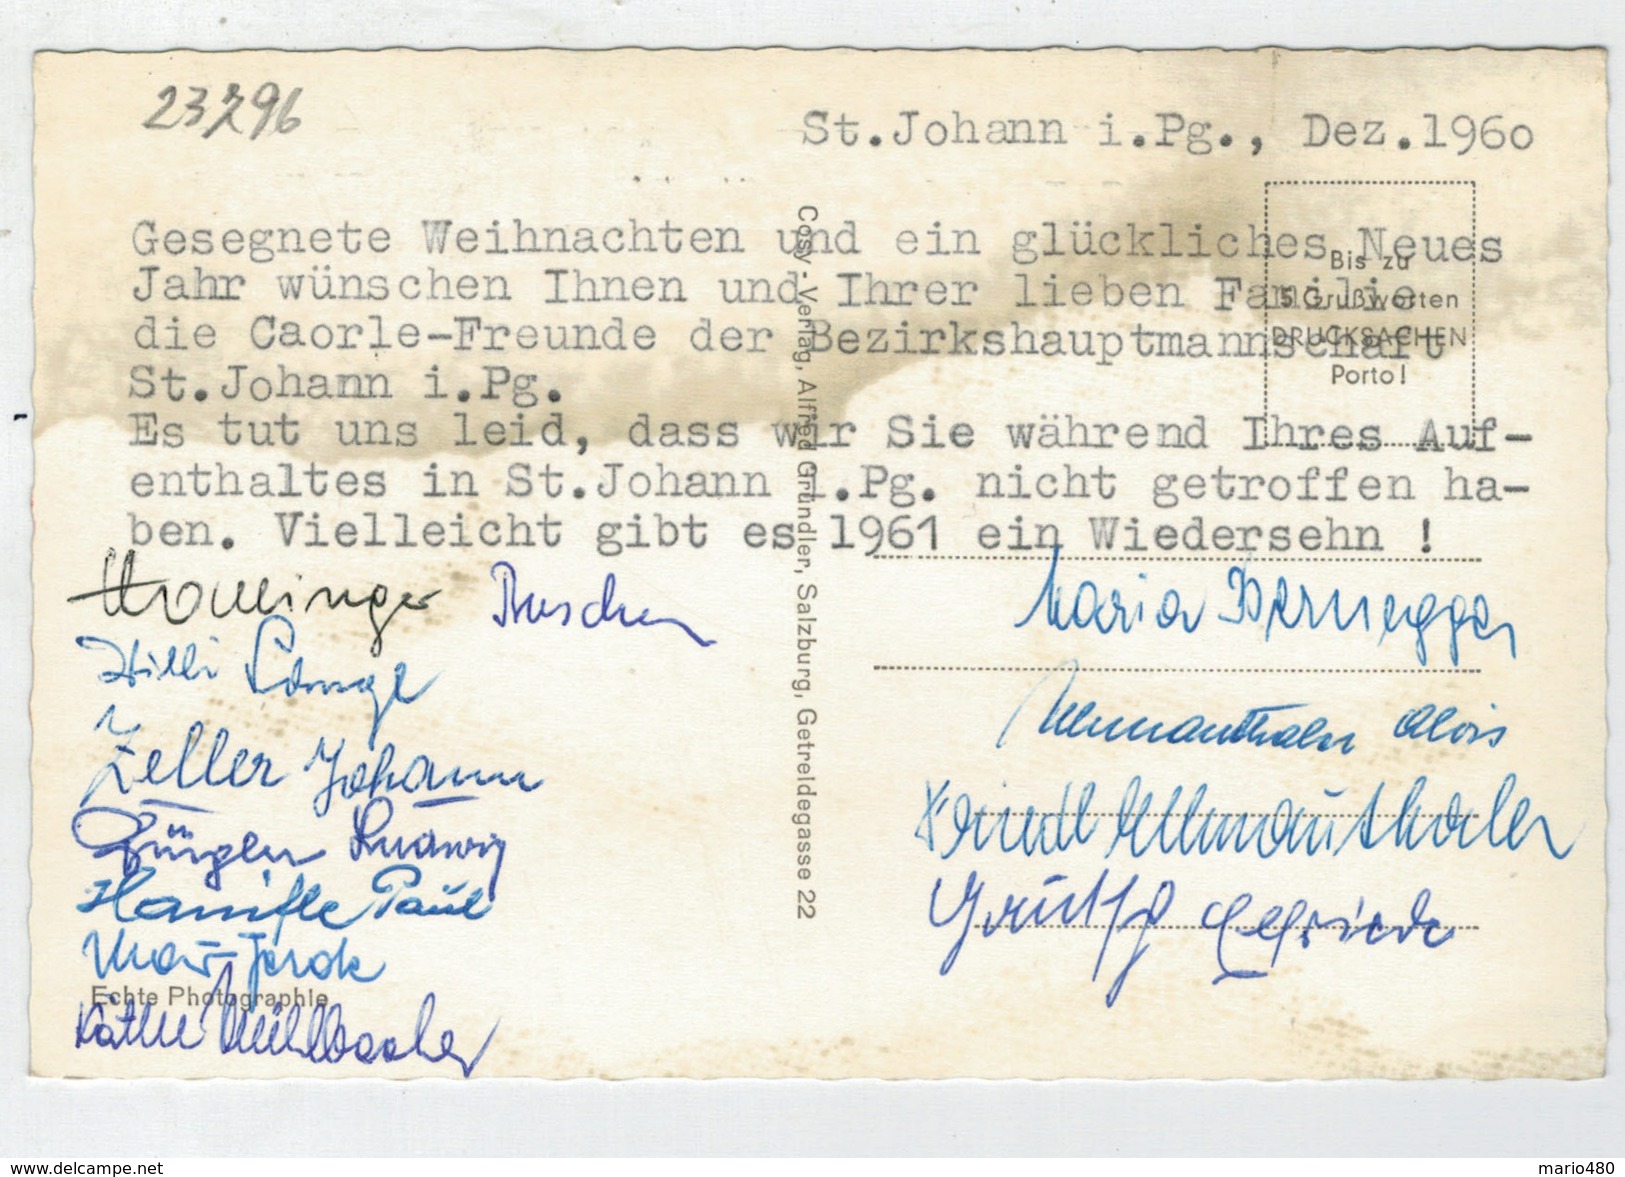 23796
St.Johann i.Pg., Dez.1960
Gesegnete Weihnachten und ein glückliches Neues
Jahr wünschen Ihnen und Ihrer lieben Familie
die Caorle-Freunde der Bezirkshauptmannschaft
St.Johann i.Pg.
Es tut uns leid, dass wir Sie während Ihres Auf-
enthaltes in St.Johann i.Pg. nicht getroffen ha-
ben. Vielleicht gibt es 1961 ein Wiedersehn !
Bis zu
5 Grußworten
DRUCKSACHEN
Porto!
Cosy-Verlag, Alfred Gründler, Salzburg, Getreidegasse 22
Maria Bernegger
Zeller Johann
Alois
Ludwig
Paul
Echte Photographie
Mühlbacher
www.delcampe.net
mario480